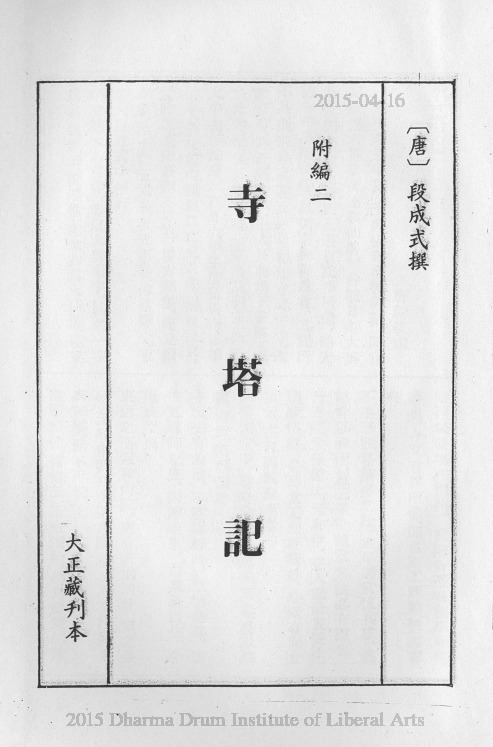 2015-04-16
〔唐〕段成式撰
附編二
寺塔記
大正藏刋本
2015 Dharma Drum Institute of Liberal Arts